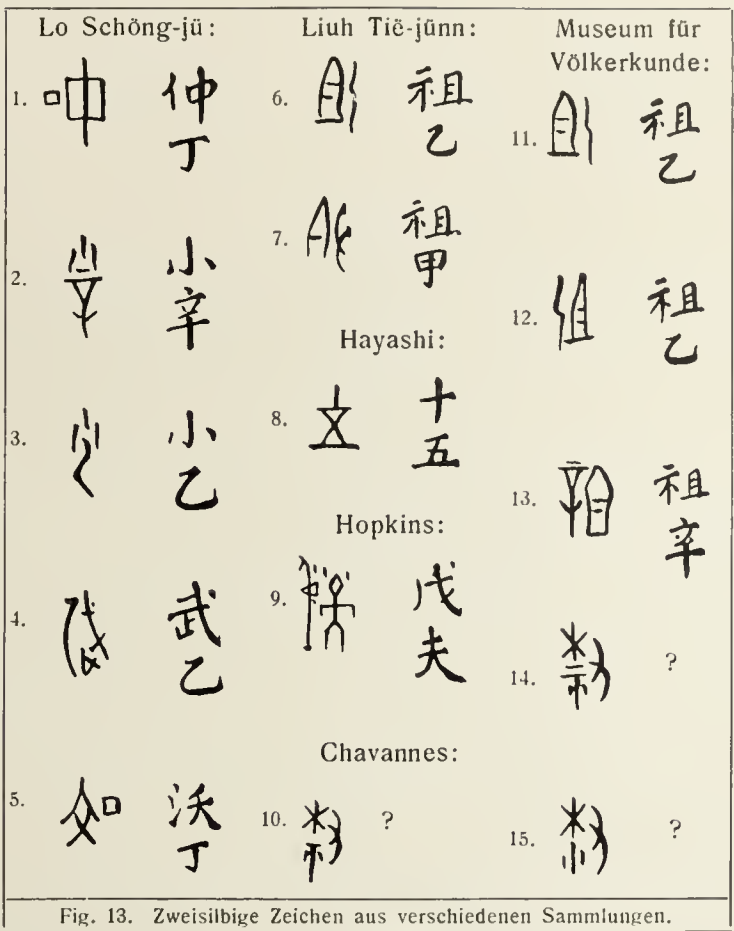 Lo Schöng-jü:
1.
仲
丁
2.
小
辛
3.
小
乙
4.
武
乙
5.
沃
丁
Liuh Tië-jünn:
6.
祖
乙
7.
祖
甲
Hayashi:
8.
十
五
Hopkins:
9.
夫
Chavannes:
10. ?
Museum für
Völkerkunde:
11.
祖
乙
12.
祖
乙
13.
祖
辛
14. ?
15. ?
Fig. 13. Zweisilbige Zeichen aus verschiedenen Sammlungen.